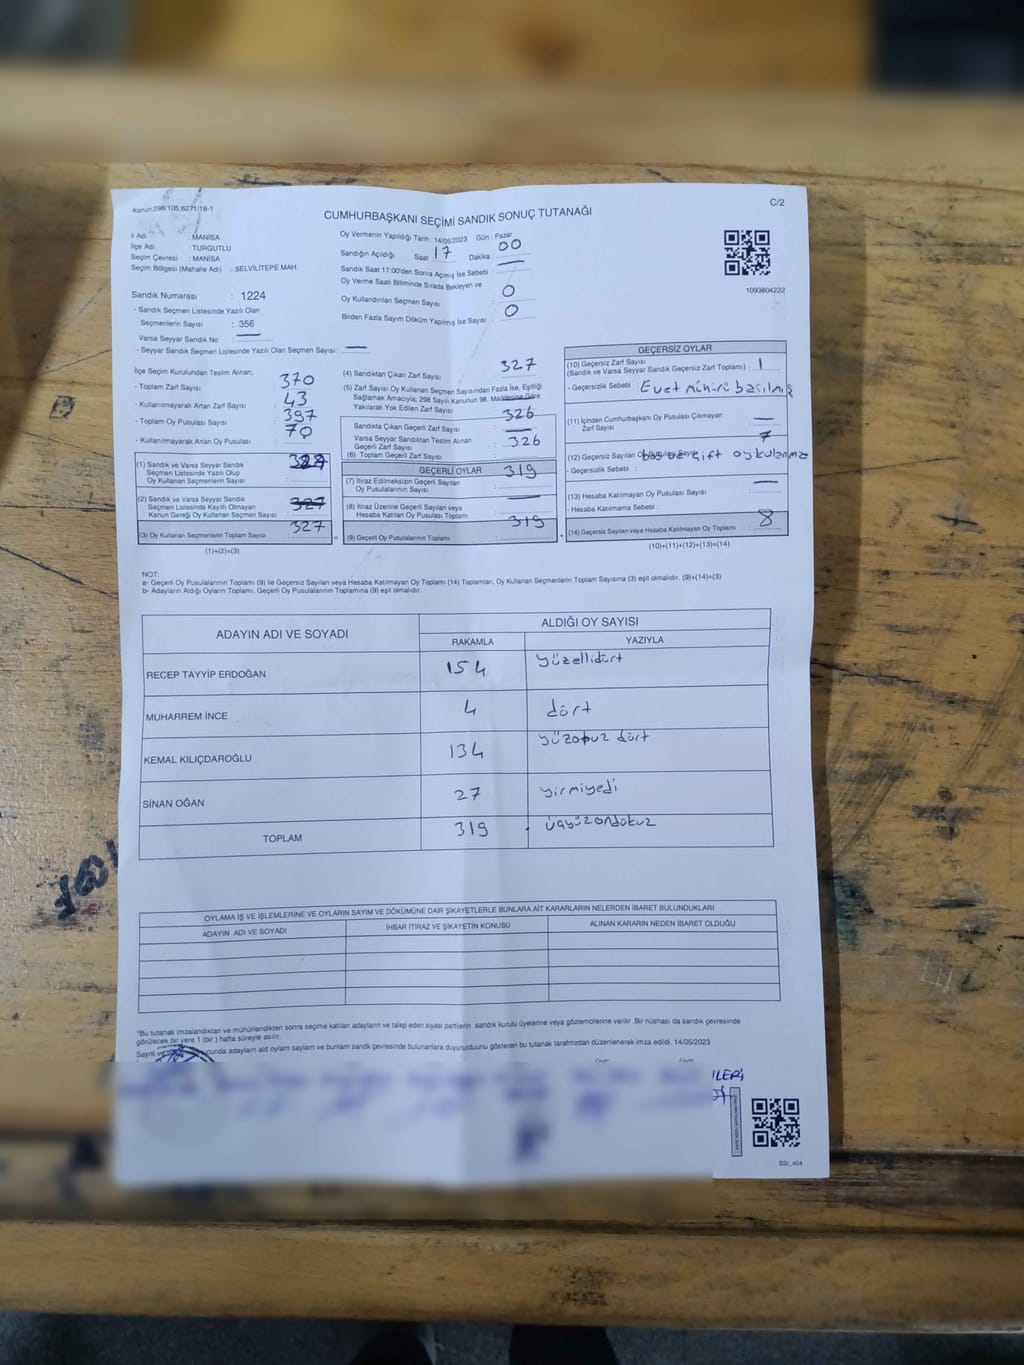 Kanun:298/105;6271/18-1
C/2
CUMHURBAŞKANI SEÇİMİ SANDIK SONUÇ TUTANAĞI
İl Adı : MANİSA
İlçe Adı : TURGUTLU
Seçim Çevresi : MANİSA
Seçim Bölgesi (Mahalle Adı) : SELVİLİTEPE MAH.
Sandık Numarası : 1224
- Sandık Seçmen Listesinde Yazılı Olan
Seçmenlerin Sayısı : 356
Varsa Seyyar Sandık No : —
- Seyyar Sandık Seçmen Listesinde Yazılı Olan Seçmen Sayısı: —
Oy Vermenin Yapıldığı Tarih : 14/05/2023 Gün : Pazar
Sandığın Açıldığı Saat : 17 Dakika : 00
Sandık Saat 17:00'den Sonra Açılmış İse Sebebi : —
Oy Verme Saati Bitiminde Sırada Bekleyen ve
Oy Kullandırılan Seçmen Sayısı : 0
Birden Fazla Sayım Döküm Yapılmış İse Sayısı : 0
1093804222
İlçe Seçim Kurulundan Teslim Alınan;
- Toplam Zarf Sayısı : 370
- Kullanılmayarak Artan Zarf Sayısı : 43
- Toplam Oy Pusulası Sayısı : 397
- Kullanılmayarak Artan Oy Pusulası : 70
(1) Sandık ve Varsa Seyyar Sandık
Seçmen Listesinde Yazılı Olup
Oy Kullanan Seçmen Sayısı : 327
(2) Sandık ve Varsa Seyyar Sandık
Seçmen Listesinde Kayıtlı Olmayan
Kanun Gereği Oy Kullanan Seçmen Sayısı : 327
(3) Oy Kullanan Seçmenlerin Toplam Sayısı : 327
(1)+(2)=(3)
(4) Sandıktan Çıkan Zarf Sayısı : 327
(5) Zarf Sayısı Oy Kullanan Seçmen Sayısından Fazla İse, Eşitliği
Sağlamak Amacıyla; 298 Sayılı Kanunun 98. Maddesine Göre
Yakılarak Yok Edilen Zarf Sayısı : —
Sandıkta Çıkan Geçerli Zarf Sayısı : 326
Varsa Seyyar Sandıktan Teslim Alınan
Geçerli Zarf Sayısı : —
(6) Toplam Geçerli Zarf Sayısı : 326
GEÇERLİ OYLAR
(7) İtiraz Edilmeksizin Geçerli Sayılan
Oy Pusulalarının Sayısı : 319
(8) İtiraz Üzerine Geçerli Sayılan veya
Hesaba Katılan Oy Pusulası Toplamı : —
(9) Geçerli Oy Pusulalarının Toplamı : 319
GEÇERSİZ OYLAR
(10) Geçersiz Zarf Sayısı
(Sandık ve Varsa Seyyar Sandık Geçersiz Zarf Toplamı) : 1
- Geçersizlik Sebebi : Evet mührü basılmış
(11) İçinden Cumhurbaşkanı Oy Pusulası Çıkmayan
Zarf Sayısı : —
(12) Geçersiz Sayılan Oy Pusulası Sayısı : 7
- Geçersizlik Sebebi : boş ve çift oy kullanma
(13) Hesaba Katılmayan Oy Pusulası Sayısı : —
- Hesaba Katılmama Sebebi :
(14) Geçersiz Sayılan veya Hesaba Katılmayan Oy Toplamı : 8
(10)+(11)+(12)+(13)=(14)
NOT:
a- Geçerli Oy Pusulalarının Toplamı (9) ile Geçersiz Sayılan veya Hesaba Katılmayan Oy Toplamı (14) Toplamları, Oy Kullanan Seçmenlerin Toplam Sayısına (3) eşit olmalıdır. (9)+(14)=(3)
b- Adayların Aldığı Oyların Toplamı, Geçerli Oy Pusulalarının Toplamına (9) eşit olmalıdır.
ADAYIN ADI VE SOYADI ALDIĞI OY SAYISI
RAKAMLA YAZIYLA
RECEP TAYYİP ERDOĞAN 154 yüzellidört
MUHARREM İNCE 4 dört
KEMAL KILIÇDAROĞLU 134 yüzotuz dört
SİNAN OĞAN 27 yirmiyedi
TOPLAM 319 üçyüzondokuz
OYLAMA İŞ VE İŞLEMLERİNE VE OYLARIN SAYIM VE DÖKÜMÜNE DAİR ŞİKAYETLERLE BUNLARA AİT KARARLARIN NELERDEN İBARET BULUNDUKLARI
ADAYIN ADI VE SOYADI İHBAR İTİRAZ VE ŞİKAYETİN KONUSU ALINAN KARARIN NEDEN İBARET OLDUĞU
*Bu tutanak imzalandıktan ve mühürlendikten sonra seçime katılan adayların ve talep eden siyasi partilerin sandık kurulu üyelerine veya gözlemcilerine verilir. Bir nüshası da sandık çevresinde
görülecek bir yere 1 (bir) hafta süreyle asılır.
14/05/2023
SSİ_404